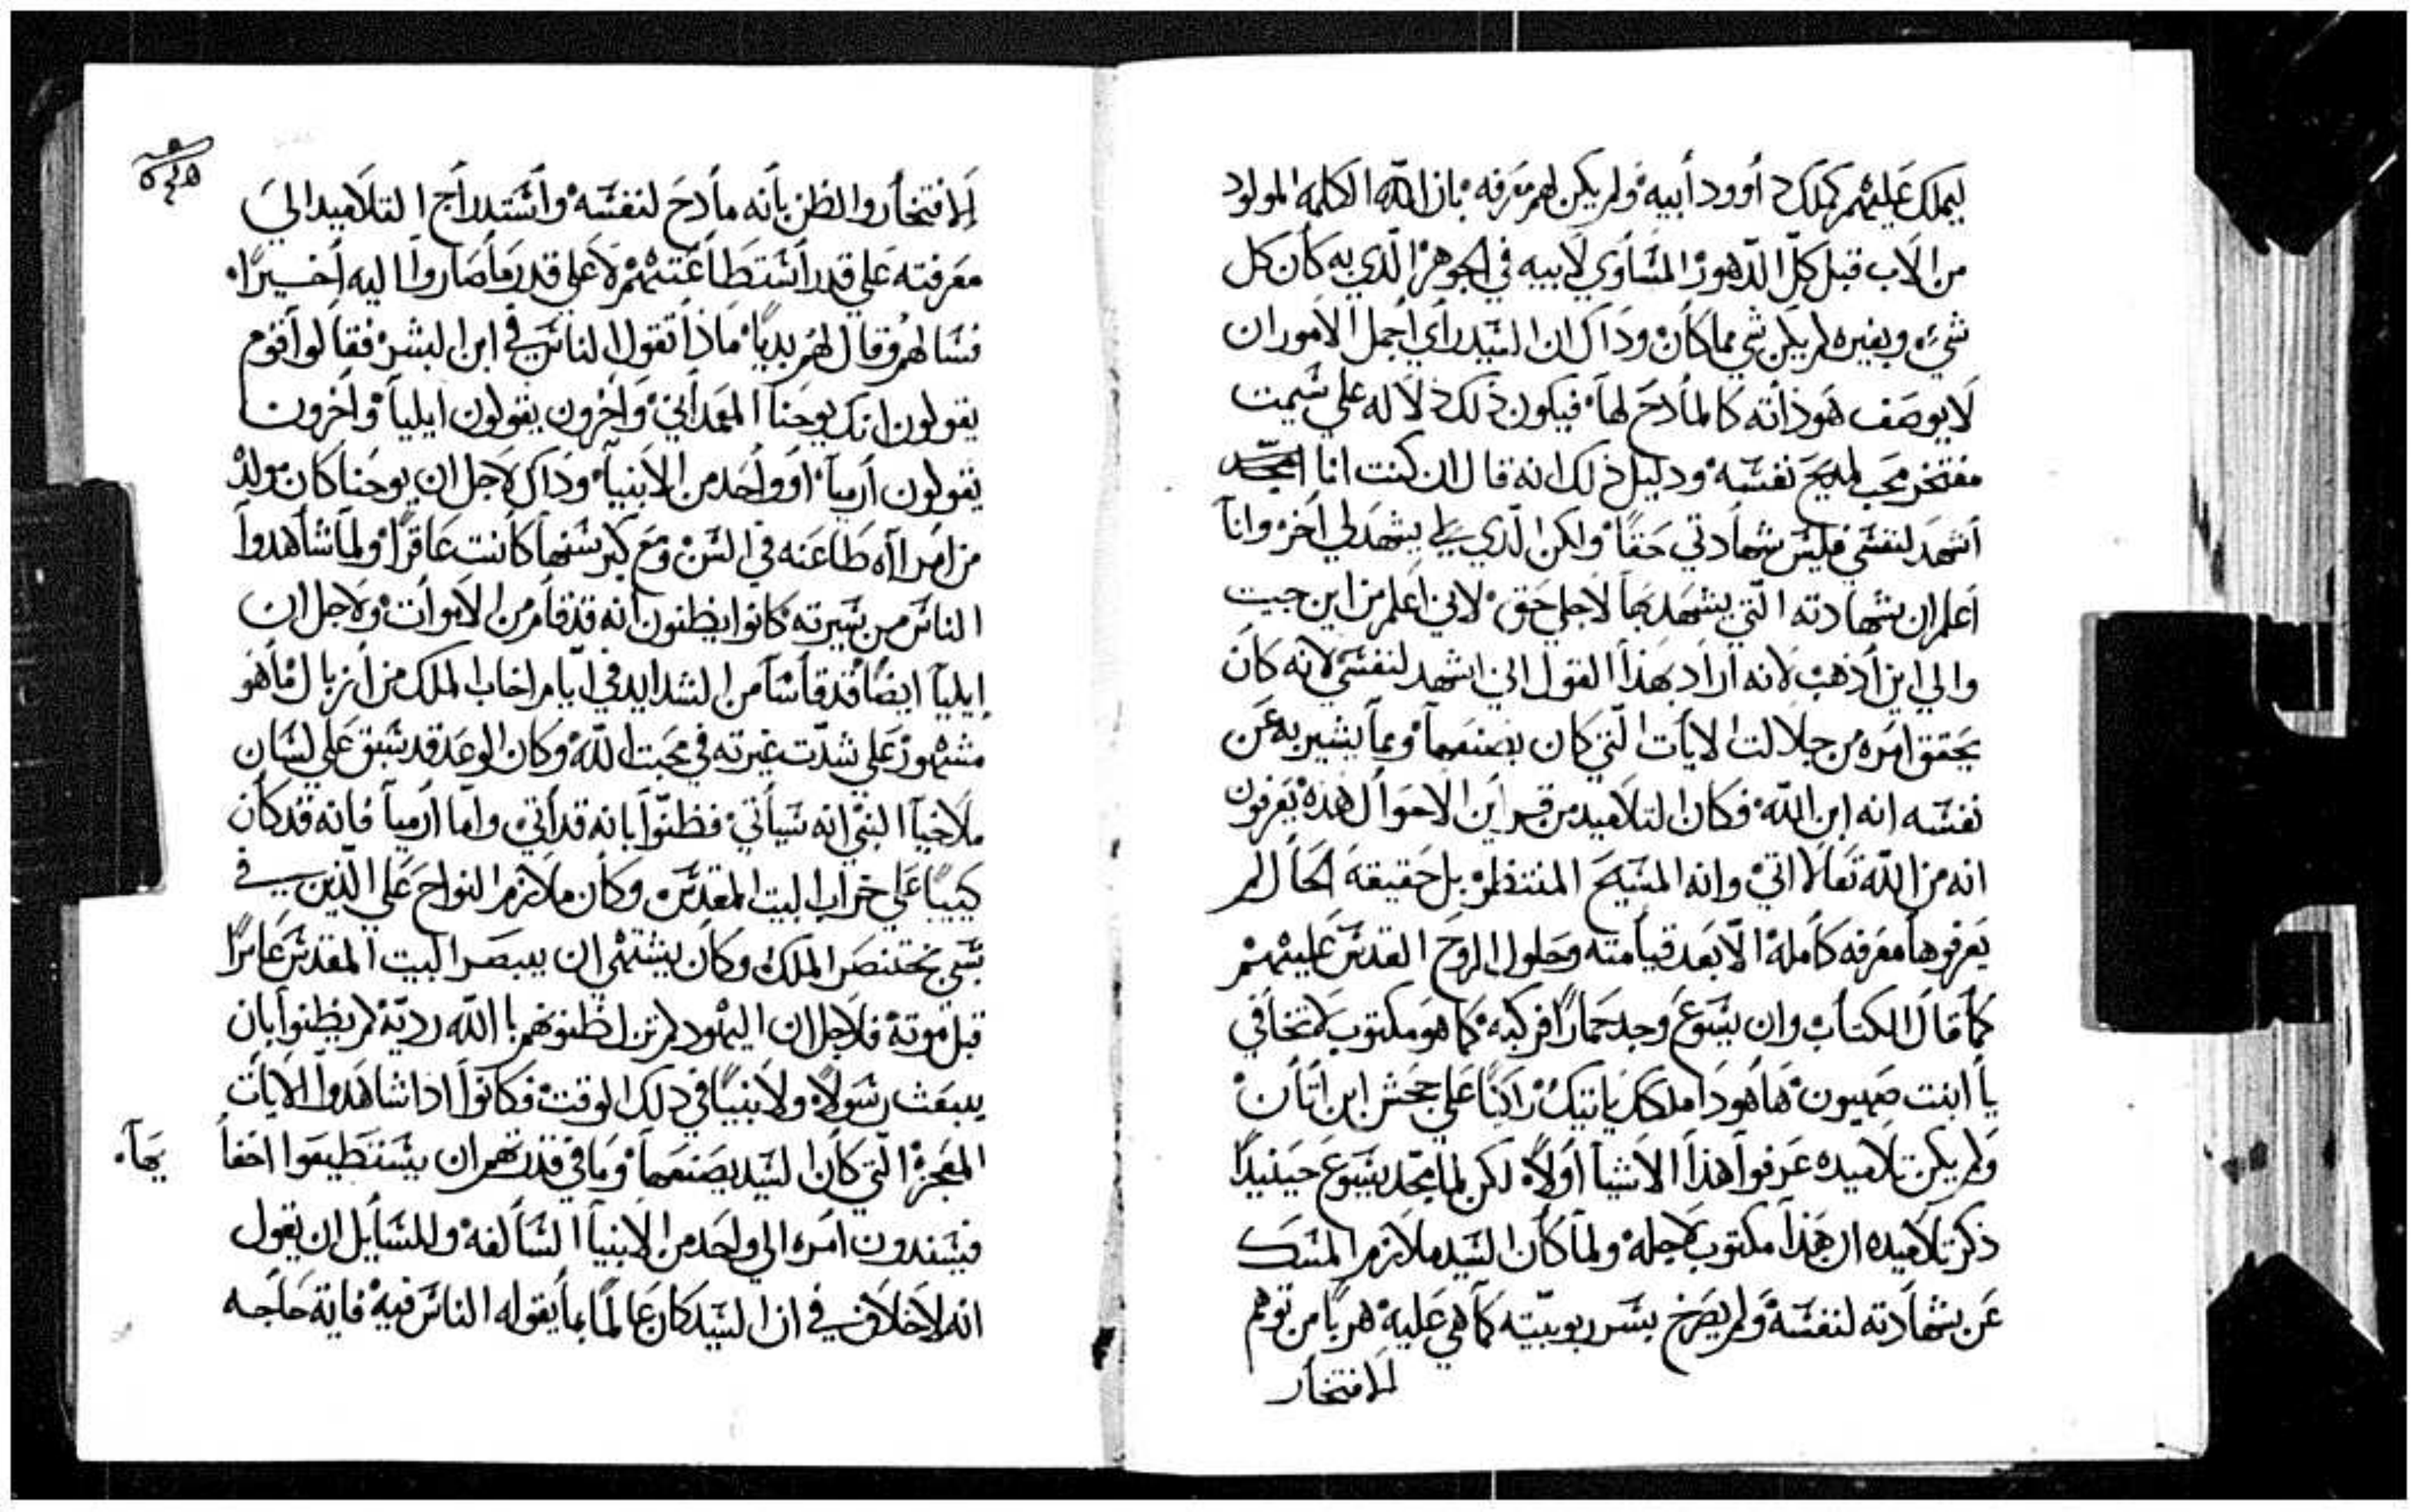 ليملك عليهم كملك داوود أبيه ولم يكن لهم معرفه بان الله الكلمه المولود
من الاب قبل كل الدهور المساوي لابيه في الجوهر الذي به كان كل
شيء وبغيره لم يكن شي مما كان وذاك ان السيد رأي أجمل الامور ان
لا يوصف هو ذاته كالمادح لها فيكون ذلك دلاله علي شيمت
مفتخر محب لمديح نفسه ودليل ذلك انه قال ان كنت انا
أشهد لنفسي فليس شهادتي حقاً ولكن الذي يشهد لي اخر وانا
أعلم ان شهادته التي يشهد بها لاجلي حق لاني اعلم من اين جيت
والي اين أذهب لانه اراد بهذا القول اني اشهد لنفسي لانه كان
يحقق امره من جلالت الايات التي كان يصنعها وبما يشير به عن
نفسه انه ابن الله فكان التلاميد من قراين الاحوال هده يعرفون
انه من الله تعالا اتي وانه المسيح المنتظر بل حقيقة الحال لم
يعرفوها معرفه كامله الا بعد قيامته وحلول الروح القدس عليهم
كما قال الكتاب وان يسوع وجد حمارًا فركبه كما هو مكتوب لا تخافي
يا ابنت صهيون ها هودا ملكك ياتيك راكبًا علي جحش ابن اتان
ولم يكن تلاميده عرفوا هذا الاشيا أولاً لكن لما تمجد يسوع حينيدًا
ذكر تلاميده ان هذا مكتوب لاجله ولما كان السيد ملازم المسك
عن شهادته لنفسه ولم يصرخ بسر ربوبيته كما هي عليه هربًا من توهم
للافتخار
للافتخار والظن بأنه مادح لنفسه وأستدراج التلاميد الي
معرفته علي قدر أستطاعتهم لا علي قدر ما صاروا اليه أخيرًا
فسالهم وقال لهم بديًا ماذا تقول الناس في ابن البشر فقالوا قوم
يقولون انك يوحنا المعمداني وآخرون يقولون ايليا وآخرون
يقولون أرميا أو واحد من الانبيا وذاك لاجل ان يوحنا كان مولد
من امرأه طاعنه في السن ومع كبر سنها كانت عاقرًا ولما شاهدوا
الناس من سيرته كانوا يظنون انه قد قام من الاموات ولاجل ان
إيليا ايضًا قد قاسا من الشدايد في ايام اخاب الملك من أزبال ما هو
مشهور علي شدت غيرته في محبت الله وكان الوعد قد سبق علي لسان
ملاخيا النبي انه سيأتي فظنوا بانه قد أتي واما أرميا فانه قد كان
كييبًا علي خراب البيت المقدس وكان ملازم النواح علي الذين في
سبي بختنصر الملك وكان يشتهي ان يبصر البيت المقدس عامرًا
قبل موته فلاجل ان اليهود لم تزل ظنونهم بالله رديّة لم يظنوا بان
يبعث رسولاً ولا نبيًا في دلك الوقت فكانوا ادا شاهدوا الايات
المعجزة التي كان السيد يصنعها وما في قدرتهم ان يستطيعوا اخفا يها
فيسندون امره الي واحد من الانبيا السالفه وللسايل ان يقول
انه لا خلاف في ان السيد كان عالمًا بما يقوله الناس فيه فاية حاجه